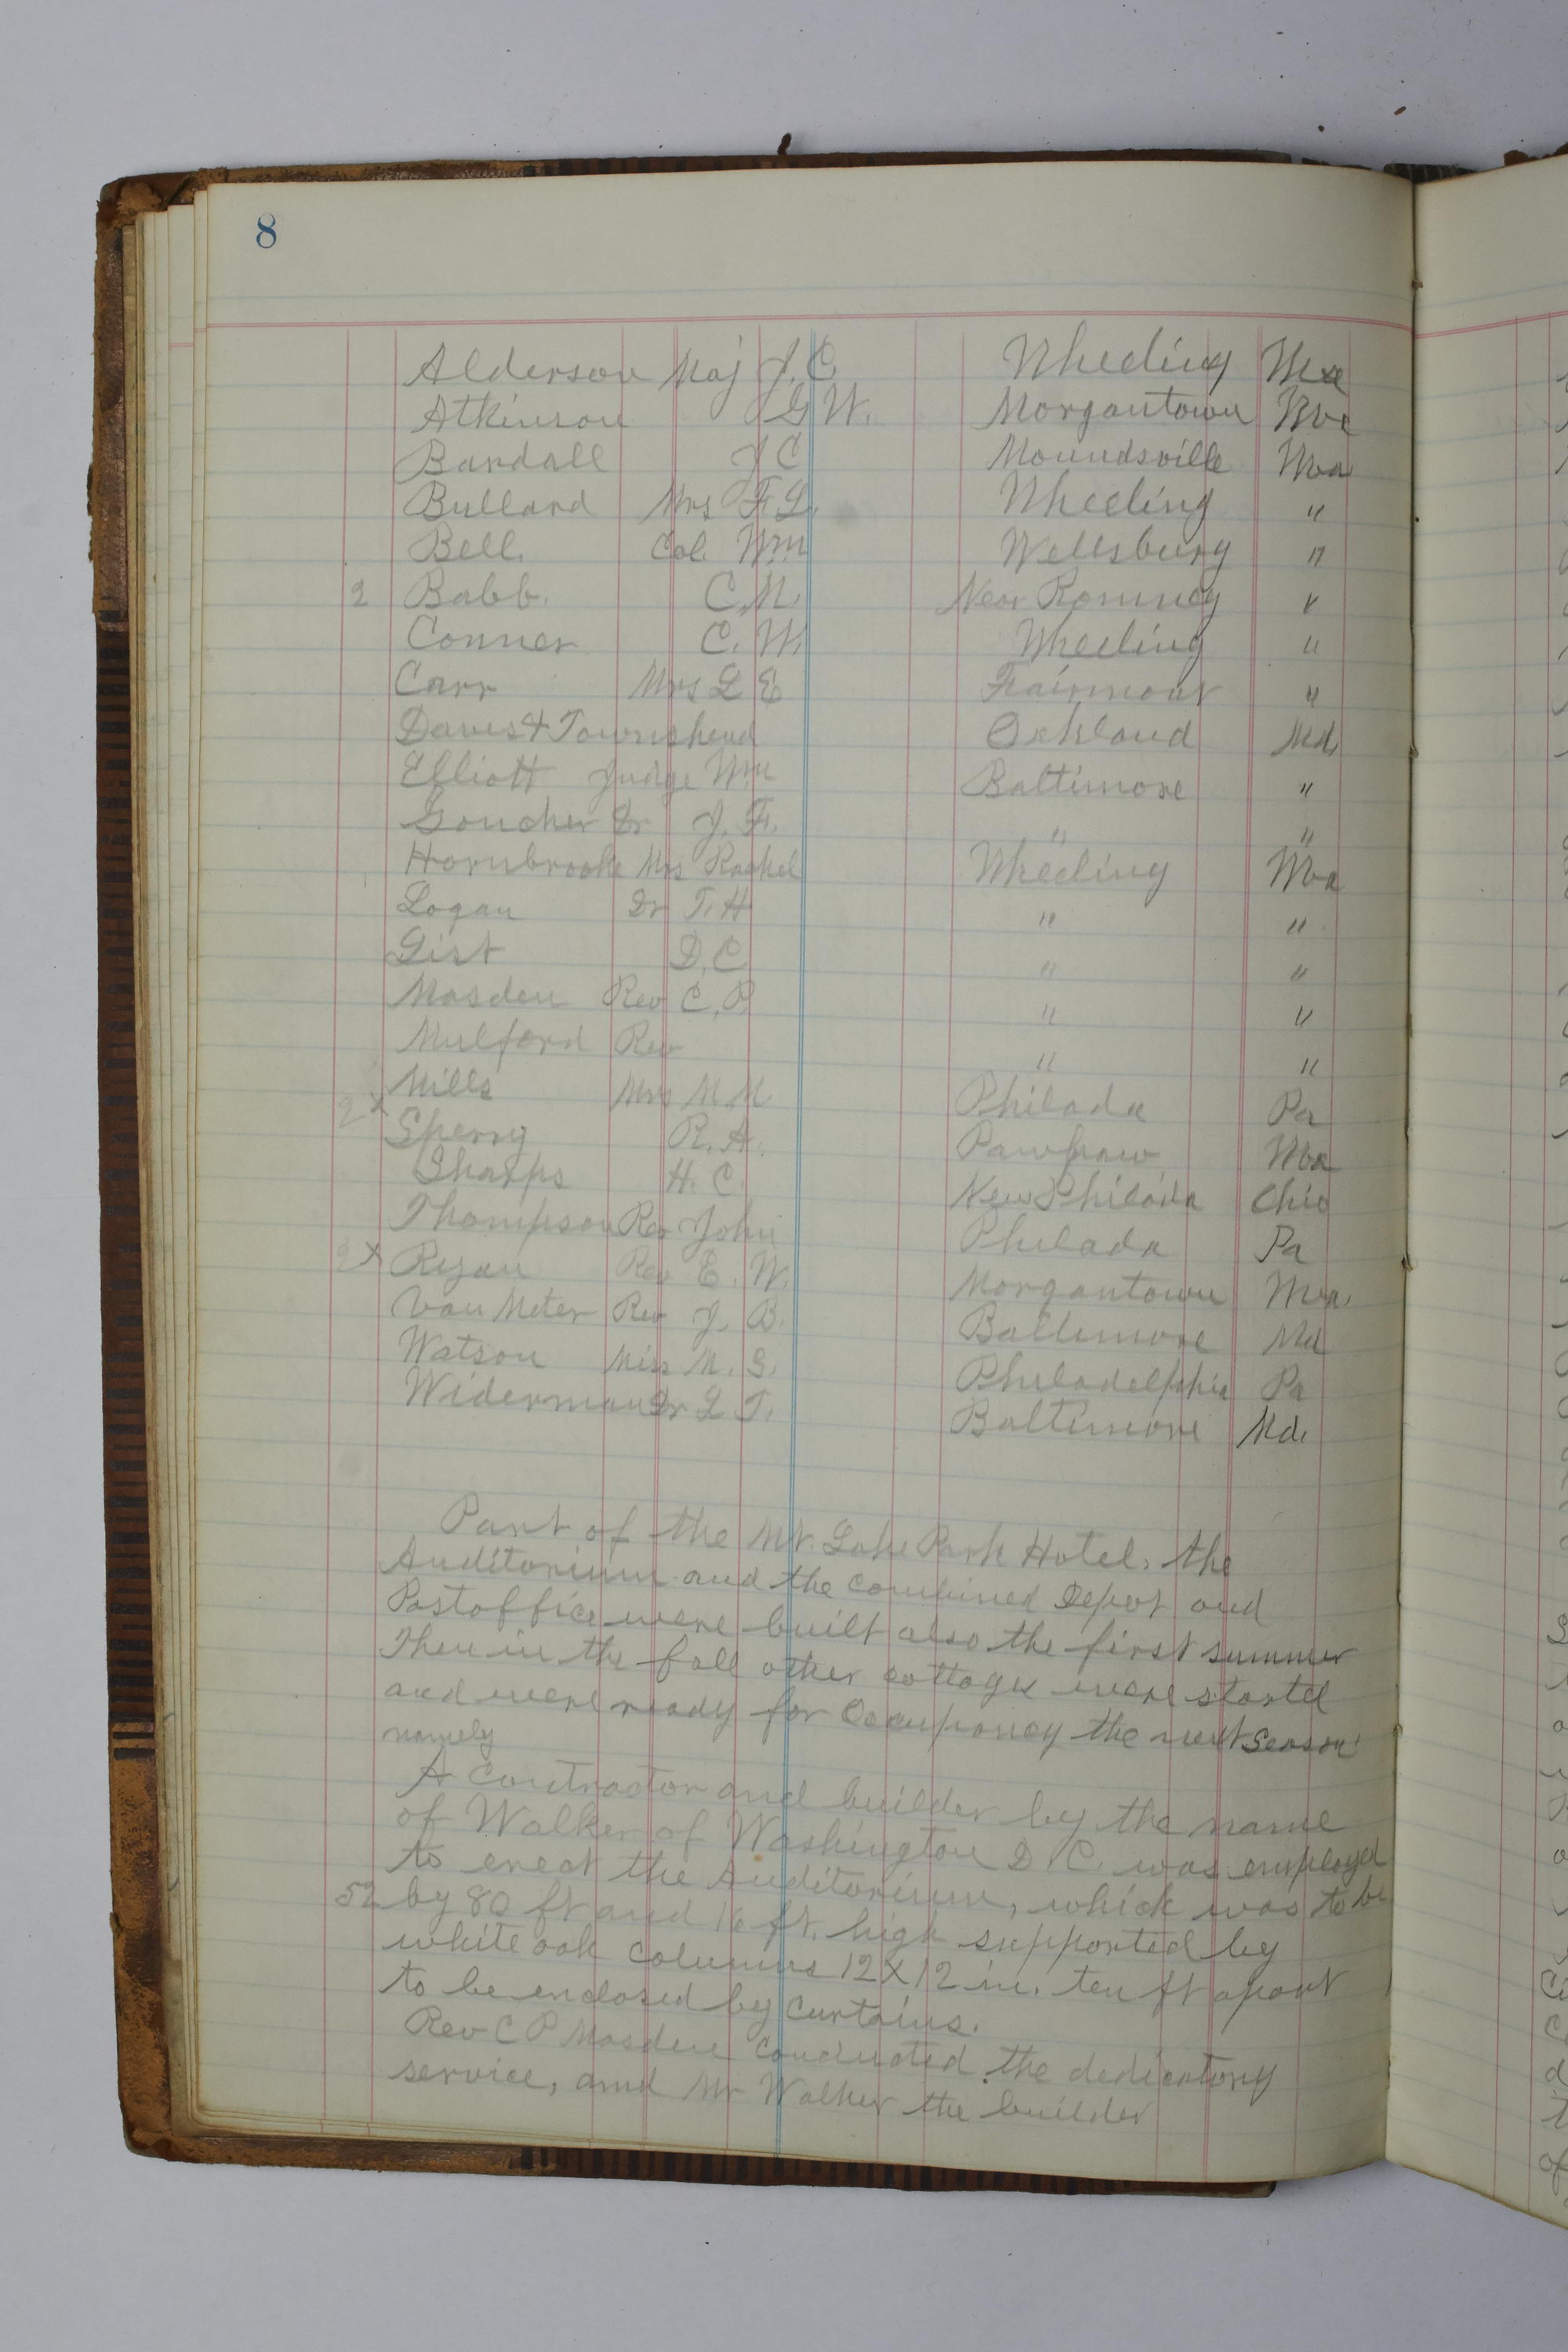 8
Alderson Maj J. C. Wheeling Wva
Atkinson G W. Morgantown Wva
Bardall J C Moundsville Wva
Bullard Mrs F. L. Wheeling "
Bell. Col. Wm Wellsburg "
2 Babb. C. M. Near Romney "
Conner C. W. Wheeling "
Carr Mrs L E Fairmont "
Davis & Townshend Oakland Md.
Elliott Judge Wm Baltimore "
Goucher Dr J. F. " "
Hornbrooke Mrs Rachel Wheeling Wva
Logan Dr T. H " "
List D. C " "
Masden Rev C. P. " "
Mulford Rev " "
Mills Mrs M. M. Philada Pa
2 x Sperry R. A. Pawpaw Wva
Sharps H. C. New Philada Ohio
Thompson Rev John Philada Pa
2 x Ryan Rev E. W. Morgantown Wva.
Van Meter Rev J. B. Baltimore Md
Watson Miss M. G. Philadelphia Pa
Widerman Dr L T. Baltimore Md.
Part of the Mt. Lake Park Hotel, the
Auditorium and the combined Depot and
Postoffice were built also the first summer
Then in the fall other cottages were started
and were ready for Occupancy the next season
namely
A Contractor and builder by the name
of Walker of Washington D. C. was employed
to erect the Auditorium, which was to be
52 by 80 ft and 16 ft. high supported by
white oak columns 12 x 12 in. ten ft apart
to be enclosed by curtains.
Rev C P Masden conducted the dedicatory
service, and Mr Walker the builder